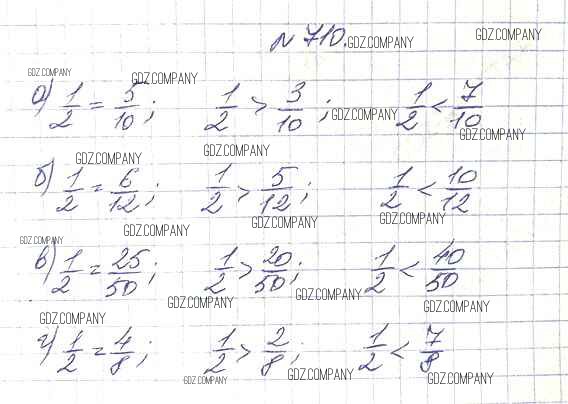 № 710. GDZ.COMPANY GDZ.COMPANY
GDZ.COMPANY GDZ.COMPANY
а) 1/2 = 5/10; 1/2 > 3/10; GDZ.COMPANY 1/2 < 7/10
GDZ.COMPANY
GDZ.COMPANY GDZ.COMPANY
б) 1/2 = 6/12; 1/2 > 5/12; 1/2 < 10/12
GDZ.COMPANY GDZ.COMPANY GDZ.COMPANY
GDZ.COMPANY
в) 1/2 = 25/50; 1/2 > 20/50; 1/2 < 40/50
GDZ.COMPANY GDZ.COMPANY GDZ.COMPANY
GDZ.COMPANY
г) 1/2 = 4/8; 1/2 > 2/8; 1/2 < 7/8
GDZ.COMPANY GDZ.COMPANY GDZ.COMPANY